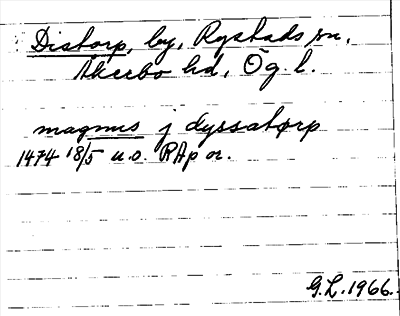 Distorp, by, Rystads sn,
Åkerbo hd, Ög. l.
magnus j dyssatorp
1474 18/5 u.o. RAp or.
G.L. 1966.